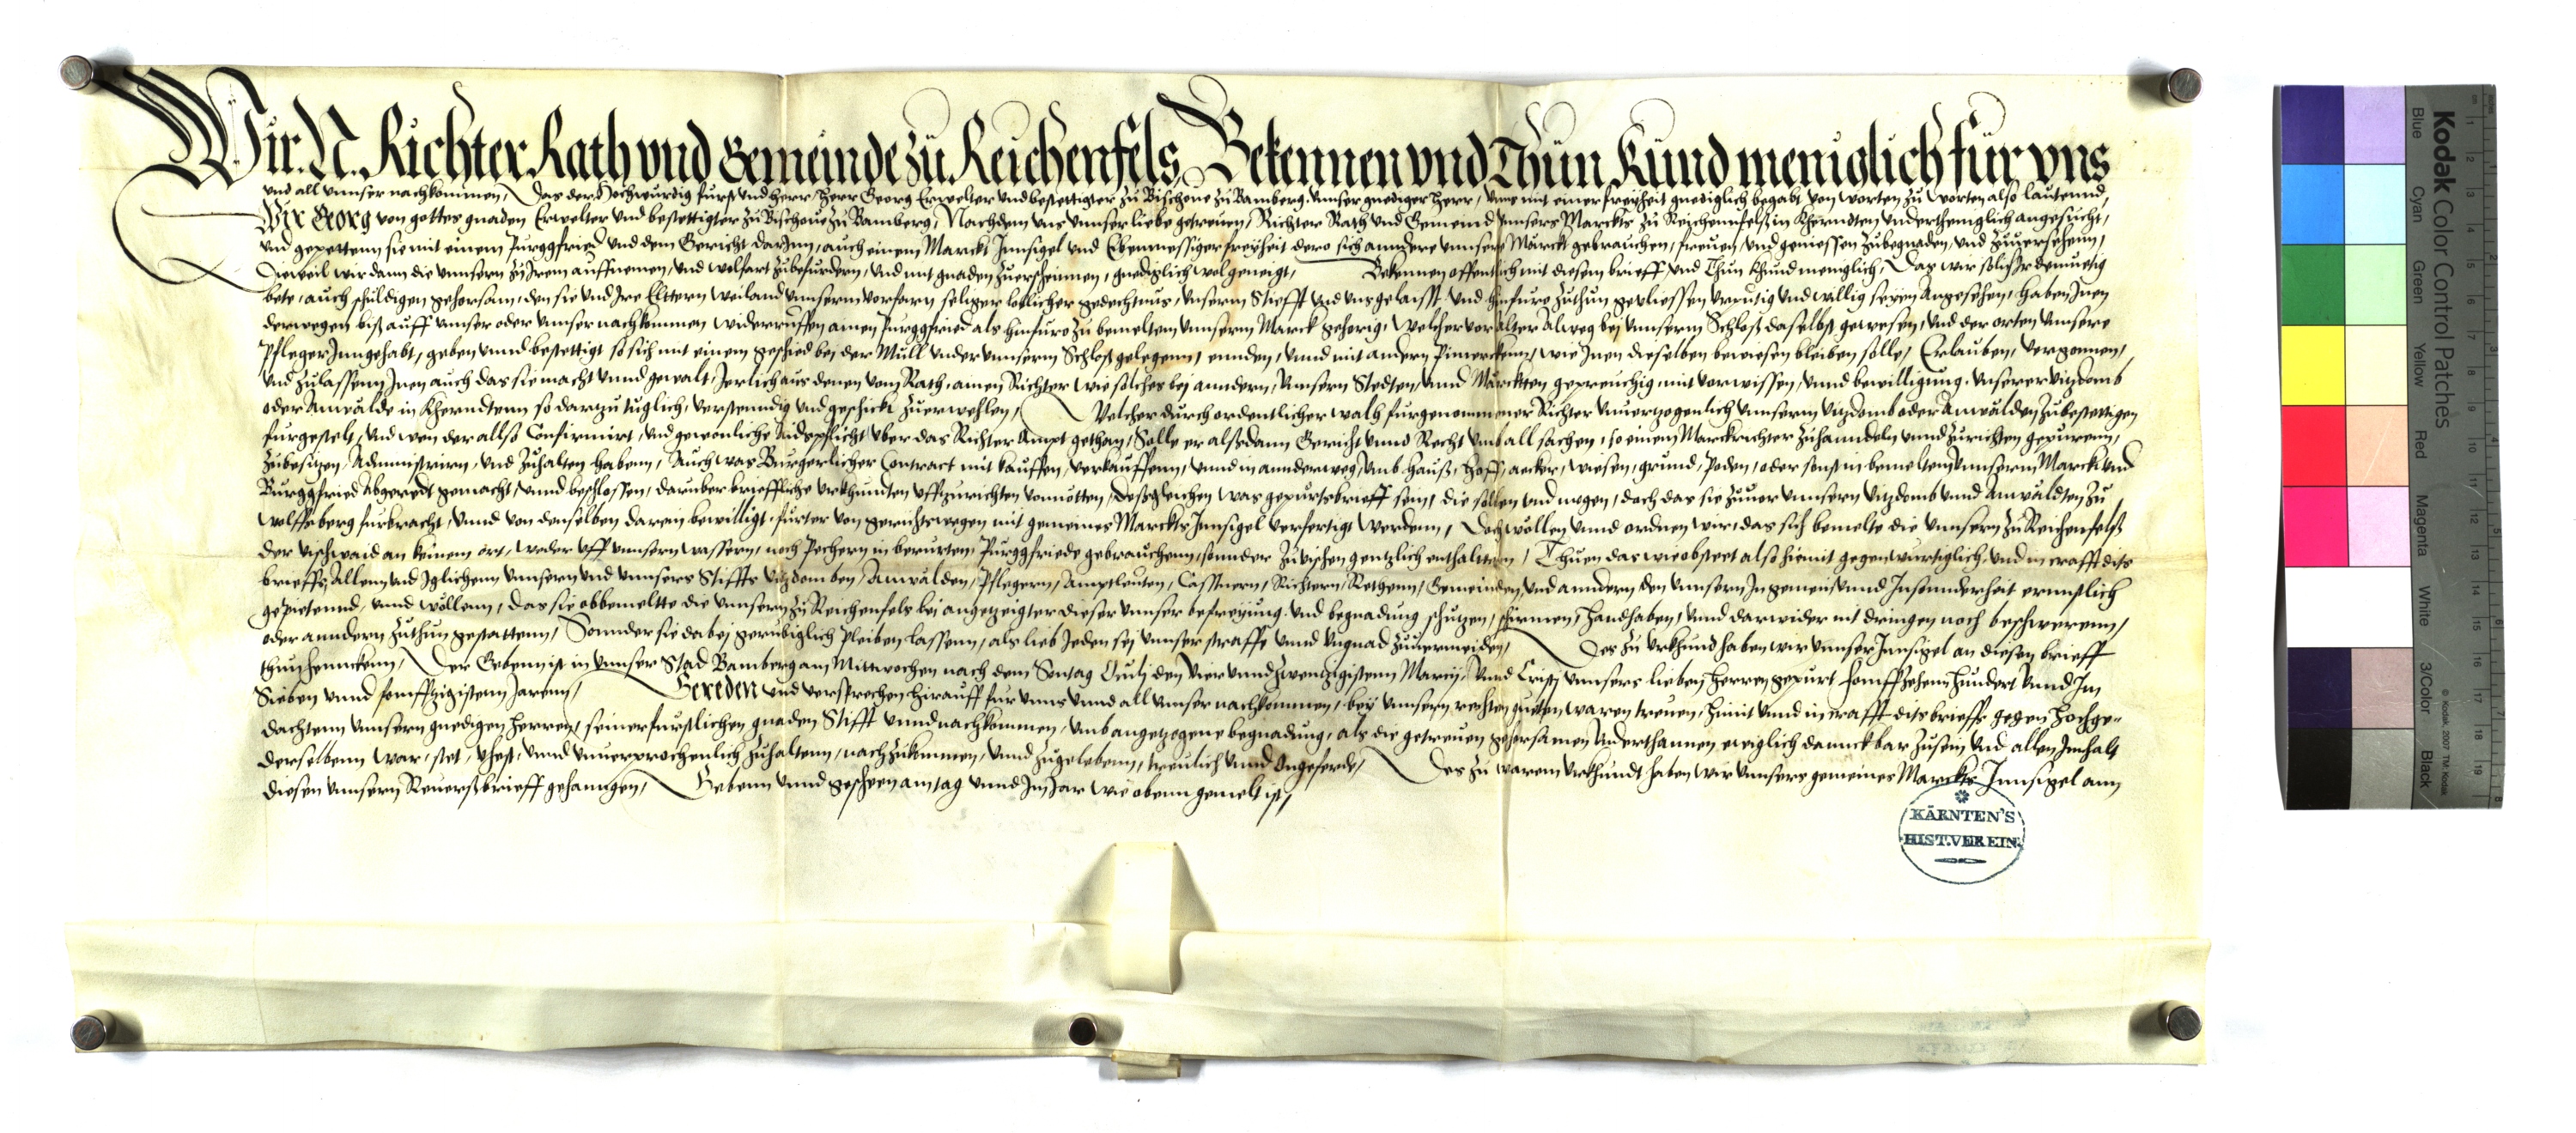 Wir. N. Richter Rath vnd Gemeinde zu Reichenfels, Bekennen vnd Thun Kund meniglich für vns
vnd all vnnser nachkommen, Das der Hochwurdig furst vnd herr, Herr Georg Erwelter vnd bestettigter zu Bischoue zu Bamberg. vnnser gnediger Herr, vnns mit einer freyheit gnediglich begabt von worten zu worten also lautennd,
Wir Georg von gottes gnaden Erwelter vnd bestettigter zu Bischoue zu Bamberg, Nachdem vns vnnser liebe getreuen, Richter Rath vnd Gemeind vnnsers Marckts zu Reichennfels in Khernndten vnderthenigklich angesucht,
vnd gepettenn sie mit einem Purggfried vnd dem Gericht darinn, auch einem Marckt Innsigel vnd Ebenmessiger freyheit dero sich anndere vnnsere Märckt gebrauchen, freuen, vnd geniessen zubegnaden, vnd zuuersehenn,
Dieweil wir dann die vnnsern zu Irem auffnemen, vnd wolfart zubefurdern, vnd mit gnaden zuerscheinen, gnediglich wol geneigt, Bekennen offentlich mit diesem brieff vnd Thun Khund meniglich, Das wir solich Ir demuetig
bete, auch schuldigen gehorsam, den sie vnd Ire Elttern weiland vnnsern vorfarn seliger loblicher gedechtnus, vnserm Stiefft vnd vns gelaisst vnd hinfuro zuthun gevliessen vrputig vnd willig seyen Angesehen, haben Inen
derwegen biß auff vnnser oder vnnser nachkommen widerruffen ainen Purggfried als hinfuro zu bemeltem vnnserm Marck gehorig, welcher vor alter alweg bej vnnserm Schloß daselbst gewesen, vnd der orten vnnsere
Pfleger Inngehabt, geben vnnd bestettigt so sich mit einem geschied bei der Mull vnder vnnserm Schloß gelegenn, ennden, vnnd mit andern Pimercken, wie Inen dieselben bewiesen bleiben solle, Erlauben, vergonnen,
vnd zulassenn Inen auch das sie macht vnnd gewalt, Jerlich aus denen vom Rath, ainen Richter wie solches bej anndern, vnnsern Stedten, vnnd Märckten gepreuchig, mit vorwissen, vnnd bewilligung, vnserer vitzdomb
oder Anwälde in Kherndtenn so darzu tuglich, verstenndig vnd geschickt zuerwehlen, Welcher durch ordentlicher walh furgenommener Richter vnuerzogenlich vnnserm vitzdomb oder Anwälden zubestettigen
furgestelt, vnd wen der allso Confirmirt, vnd gewonliche Aidspflicht vber das Richter Ampt gethan, Solle er alsdann Gericht vnnd Recht vmb all sachen, so einem Marckrichter zuhanndeln vnnd zurichten gepurenn,
zubesitzen, Administrirn, vnd zuhalten haben, Auch was Burgerlicher Contract mit kauffen, verkauffenn, vnnd in annderweg, vmb hauß, hoff, aecker, wiesen, grund, Poden, oder sonst in bemeltem vnnserm Marckt vnd
Burggfried Abgeredt gemacht, vnnd beschlossen, daruber brieffliche vrkhunden vffzurichten vonnötten, Desgleichen was gepurtsbrieff sein, die sollen vnd mogen, doch das sie zuuor vnnsern vitzdomb vnnd Anwäldten zu
Wolffsberg furbracht, vnnd von denselben darein bewilligt, furter von gerichtswegen mit gemeines Marckts Innsigel verfertigt werdenn, Doch wöllen vnnd ordnen wir, das sich bemelte die vnnsern zu Reichenfelß
der vischwaid an keinem ort, weder vff vnnsern wassern, noch Pechern in berurten Purggfriede gebrauchenn, sonnder zuvischen gentzlich enthalten, Thuen das wie obstet also hiemit gegenwurtiglich, vnd in crafft dits
brieffs, Allenn vnd Iglichenn vnnsern vnd vnnsers Stiffts vitzdomben, Anwälden, Pflegern, Amptleuten, Casstnern, Richtern, Rethenn, Gemeinden, vnd anndern, den vnnsern In gemein vnnd Insonnderheit ernnstlich
gepietennd, vnnd wöllenn, das sie obbemeltte die vnnsern zu Reichenfels bei angezeigter dieser vnnser befreyung vnd begnadung schutzen, schirmen, handhaben, vnnd darwider nit dringen noch beschwerenn,
oder anndern zuthun gestattenn, Sonnder sie dabej geruhiglich pleiben lassenn, als lieb Jeden sej vnnser straffe vnnd vngnad zuuermeiden, Des zu vrkhund haben wir vnnser Innsigel an diesen brieff
thun henncken, Der Geben ist in vnnser Stad Bamberg am Mittwochen nach dem Sontag Oculj den vier vnnd zwenzigistenn Martij, Vnnd Cristj vnnsers lieben herren gepurt fonffzehenn hundert vnnd Im
Sieben vnnd fonffzigistenn Jarenn, Gereden vnd versprechen hirauff fur vnns vnnd all vnnser nachkommen, bey vnnsern rechten guten waren treuen, himit vnnd in crafft dits brieffs gegen hochge-
dachtenn vnnsern gnedigen herren, seiner furstlichen gnaden Stifft vnnd nachkommen, vmb angezogene begnadung, als die getreuen gehorsamen vnderthannen ewiglich danckbar zusein vnd allen Innhalt
derselbenn war, stet, vhest, vnnd vnuerprochenlich zuhaltenn, nachzukommen, vnnd zugelebenn, treulich vnnd ongeferde, Des zu warem vrkhundt haben wir vnnsers gemeines Marckts Innsigel ann
diesen vnnsern Reuerßbrieff gehanngen, Gebenn vnnd gescheen am tag vnnd Im Jar wie obenn gemelt ist,
KÄRNTEN'S
HIST.VEREIN.
Kodak Color Control Patches
© Kodak, 2007 TM: Kodak
Blue Cyan Green Yellow Red Magenta White 3/Color Black